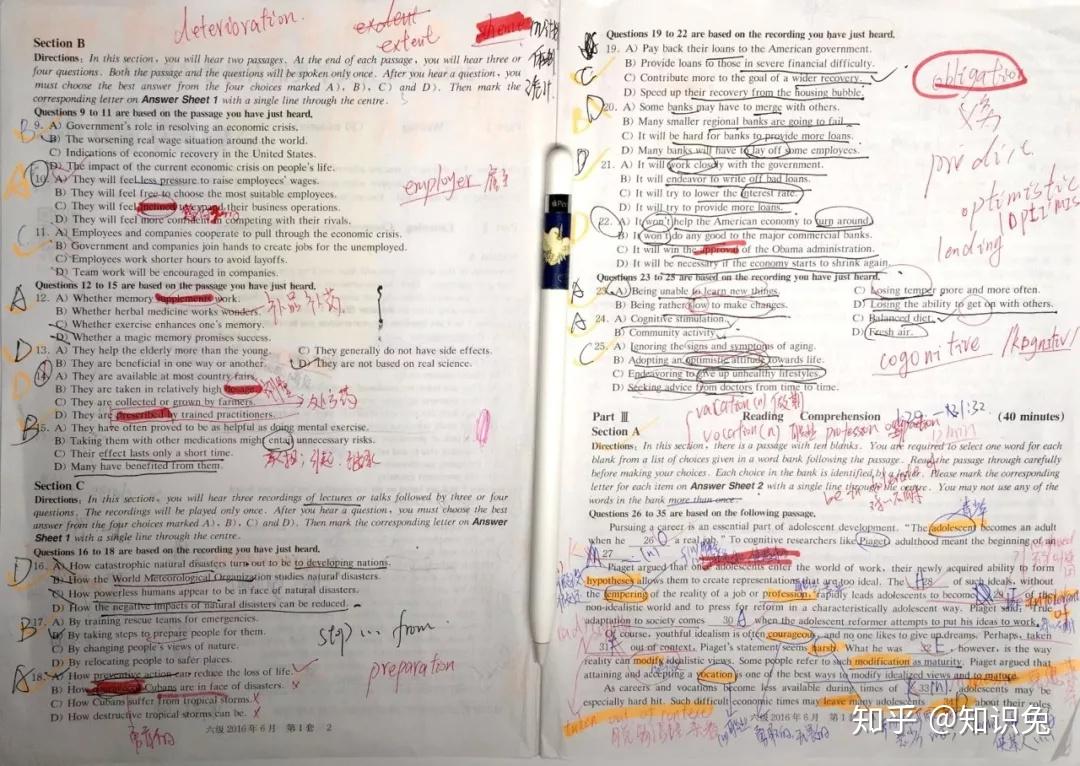 deterioration.
extent
extent
Section B
Directions: In this section, you will hear two passages. At the end of each passage, you will hear three or
four questions. Both the passage and the questions will be spoken only once. After you hear a question, you
must choose the best answer from the four choices marked A), B), C) and D). Then mark the
corresponding letter on Answer Sheet 1 with a single line through the centre.
Questions 9 to 11 are based on the passage you have just heard.
9. A) Government's role in resolving an economic crisis.
B) The worsening real wage situation around the world.
C) Indications of economic recovery in the United States.
D) The impact of the current economic crisis on people's life.
10. A) They will feel less pressure to raise employees' wages.
B) They will feel free to choose the most suitable employees.
C) They will feel inclined to expand their business operations.
D) They will feel more confident in competing with their rivals.
employer 雇主
11. A) Employees and companies cooperate to pull through the economic crisis.
B) Government and companies join hands to create jobs for the unemployed.
C) Employees work shorter hours to avoid layoffs.
D) Team work will be encouraged in companies.
Questions 12 to 15 are based on the passage you have just heard.
12. A) Whether memory supplements work.
B) Whether herbal medicine works wonders.
补品 补药
C) Whether exercise enhances one's memory.
D) Whether a magic memory promises success.
13. A) They help the elderly more than the young.
C) They generally do not have side effects.
B) They are beneficial in one way or another.
D) They are not based on real science.
14. A) They are available at most country fairs.
B) They are taken in relatively high dosage.
C) They are collected or grown by farmers.
D) They are prescribed by trained practitioners.
15. A) They have often proved to be as helpful as doing mental exercise.
B) Taking them with other medications might entail unnecessary risks.
C) Their effect lasts only a short time.
D) Many have benefited from them.
Section C
Directions: In this section, you will hear three recordings of lectures or talks followed by three or four
questions. The recordings will be played only once. After you hear a question, you must choose the best
answer from the four choices marked A), B), C) and D). Then mark the corresponding letter on Answer
Sheet 1 with a single line through the centre.
Questions 16 to 18 are based on the recording you have just heard.
16. A) How catastrophic natural disasters turn out to be to developing nations.
B) How the World Meteorological Organization studies natural disasters.
C) How powerless humans appear to be in face of natural disasters.
D) How the negative impacts of natural disasters can be reduced.
17. A) By training rescue teams for emergencies.
B) By taking steps to prepare people for them.
C) By changing people's views of nature.
D) By relocating people to safer places.
stop ... from
preparation
18. A) How preventive action can reduce the loss of life.
B) How Cubans are in face of disasters.
C) How Cubans suffer from tropical storms.
D) How destructive tropical storms can be.
六级 2016年6月 第1套 2
Questions 19 to 22 are based on the recording you have just heard.
19. A) Pay back their loans to the American government.
B) Provide loans to those in severe financial difficulty.
C) Contribute more to the goal of a wider recovery.
D) Speed up their recovery from the housing bubble.
obligation
义务
20. A) Some banks may have to merge with others.
B) Many smaller regional banks are going to fail.
C) It will be hard for banks to provide more loans.
D) Many banks will have to lay off some employees.
21. A) It will work closely with the government.
B) It will endeavor to write off bad loans.
C) It will try to lower the interest rate.
D) It will try to provide more loans.
optimistic
lending
22. A) It won't help the American economy to turn around.
B) It won't do any good to the major commercial banks.
C) It will win the approval of the Obama administration.
D) It will be necessary if the economy starts to shrink again.
Questions 23 to 25 are based on the recording you have just heard.
23. A) Being unable to learn new things.
C) Losing temper more and more often.
B) Being rather slow to make changes.
D) Losing the ability to get on with others.
24. A) Cognitive stimulation.
C) Balanced diet.
B) Community activity.
D) Fresh air.
25. A) Ignoring the signs and symptoms of aging.
B) Adopting an optimistic attitude towards life.
C) Endeavoring to give up unhealthy lifestyles.
D) Seeking advice from doctors from time to time.
cogonitive
vacation (n) 假期
Part Ⅲ Reading Comprehension (40 minutes)
Section A
Directions: In this section, there is a passage with ten blanks. You are required to select one word for each
blank from a list of choices given in a word bank following the passage. Read the passage through carefully
before making your choices. Each choice in the bank is identified by a letter. Please mark the corresponding
letter for each item on Answer Sheet 2 with a single line through the centre. You may not use any of the
words in the bank more than once.
Questions 26 to 35 are based on the following passage.
Pursuing a career is an essential part of adolescent development. "The adolescent becomes an adult
when he 26 a real job." To cognitive researchers like Piaget, adulthood meant the beginning of an
27
Piaget argued that once adolescents enter the world of work, their newly acquired ability to form
hypotheses allows them to create representations that are too ideal. The 28 of such ideals, without
the tempering of the reality of a job or profession, rapidly leads adolescents to become 29 of the
non-idealistic world and to press for reform in a characteristically adolescent way. Piaget said: "True
adaptation to society comes 30 when the adolescent reformer attempts to put his ideas to work."
Of course, youthful idealism is often courageous, and no one likes to give up dreams. Perhaps, taken
31 out of context, Piaget's statement seems harsh. What he was 32, however, is the way
reality can modify idealistic views. Some people refer to such modification as maturity. Piaget argued that
attaining and accepting a vocation is one of the best ways to modify idealized views and to mature.
As careers and vocations become less available during times of 33, adolescents may be
especially hard hit. Such difficult economic times may leave many adolescents about their roles
六级 2016年6月 第1套
知乎 @知识兔